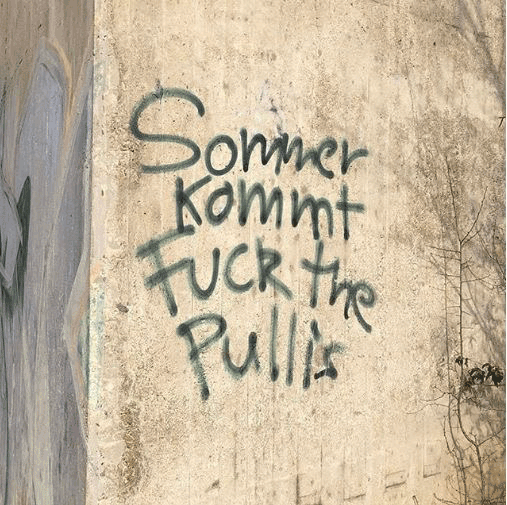 Sommer
kommt
Fuck the
Pullis